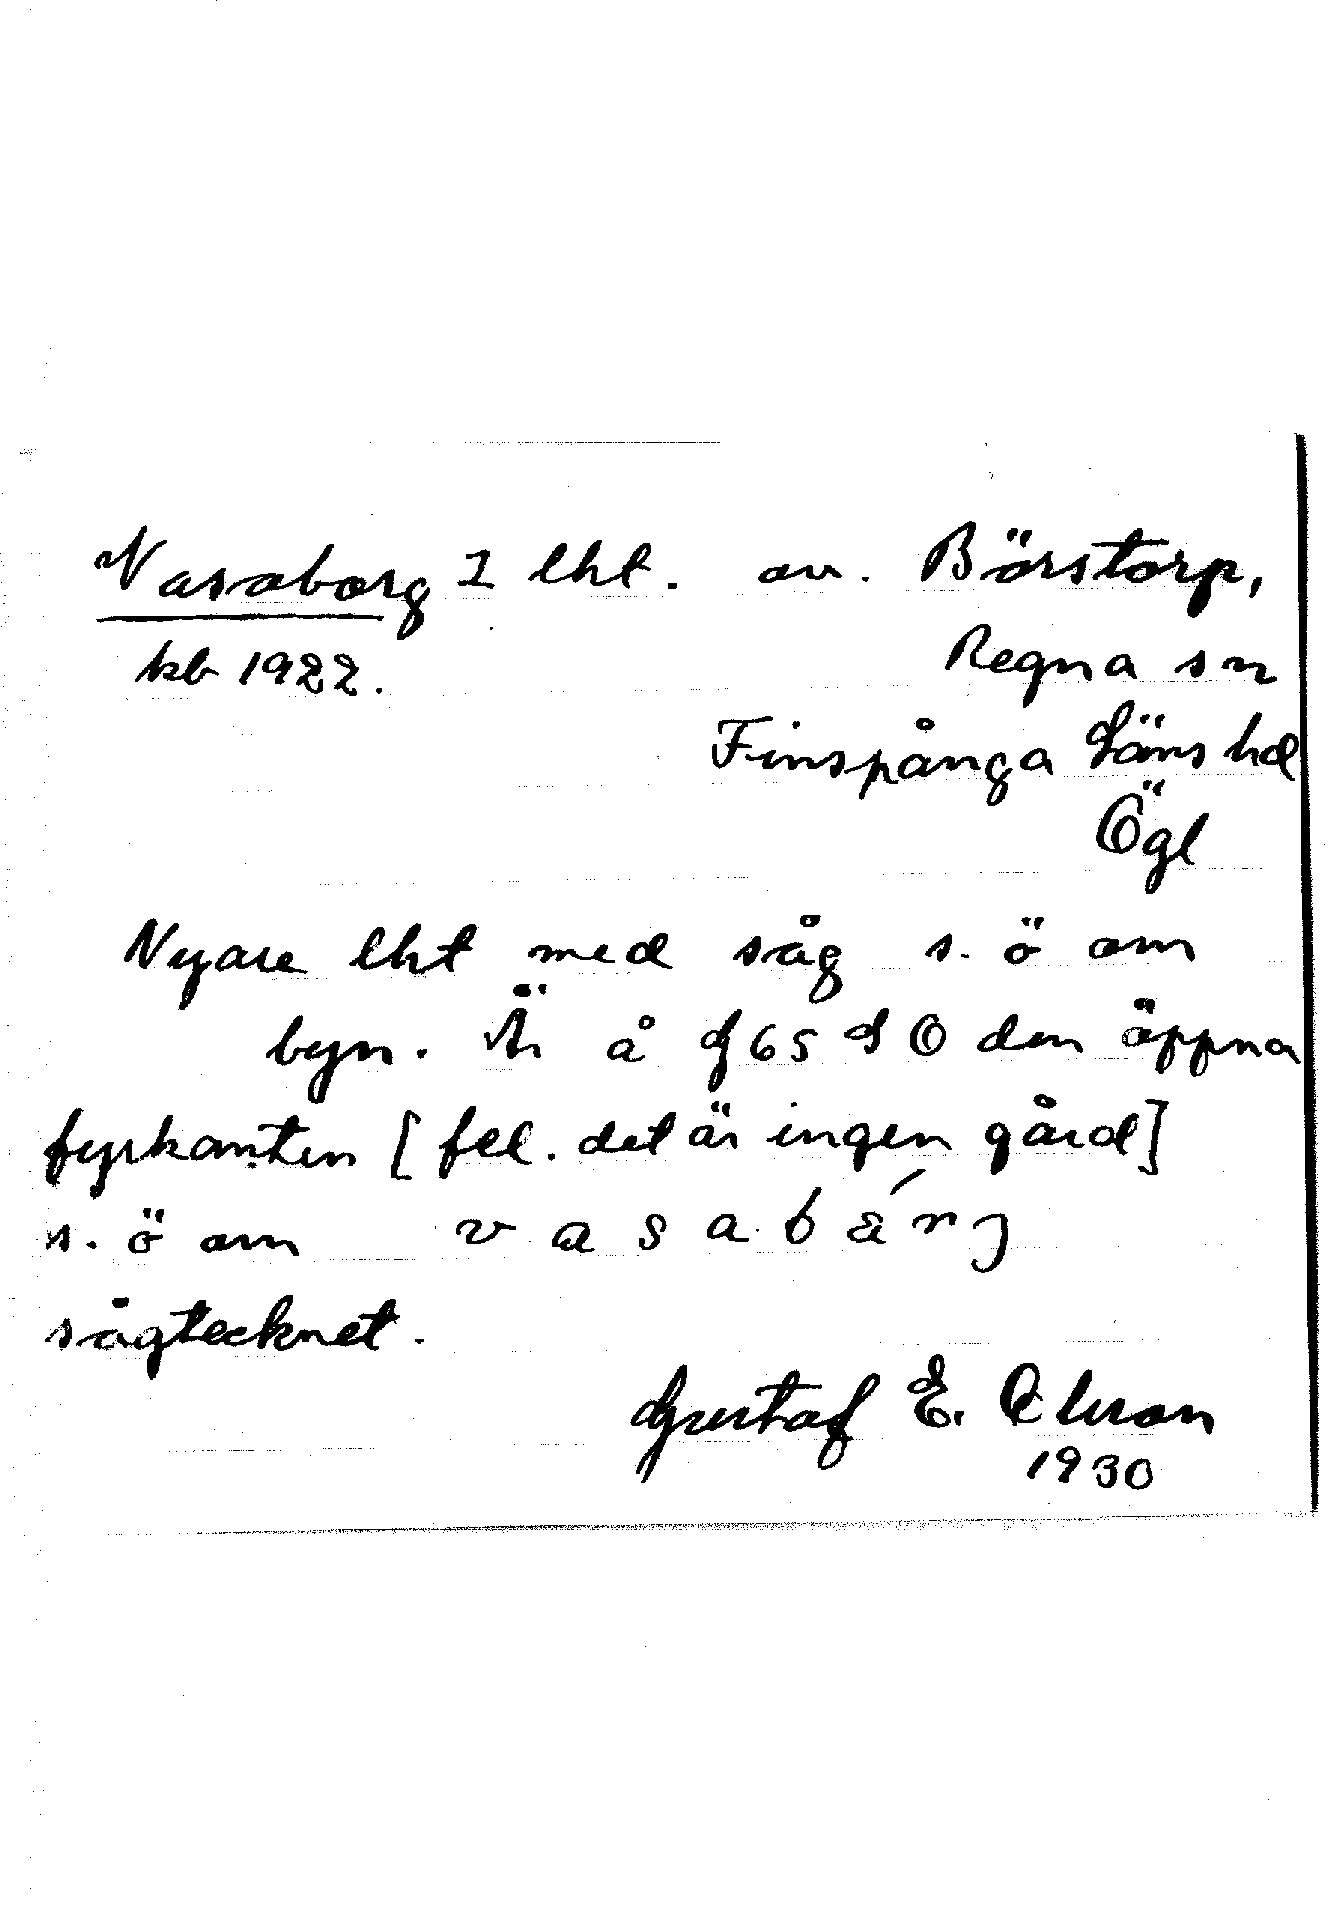 Vasaborg 1 lht. av. Börstorp,
kb 1922. Regna sn
Finspånga Läns hd
Ögl
Nyare lht med såg s. ö om
byn. Är å J 65 S O den öppna
fyrkanten [fel. det är ingen gård]
s. ö om vasabárj
sågtecknet.
Gustaf E.
1930